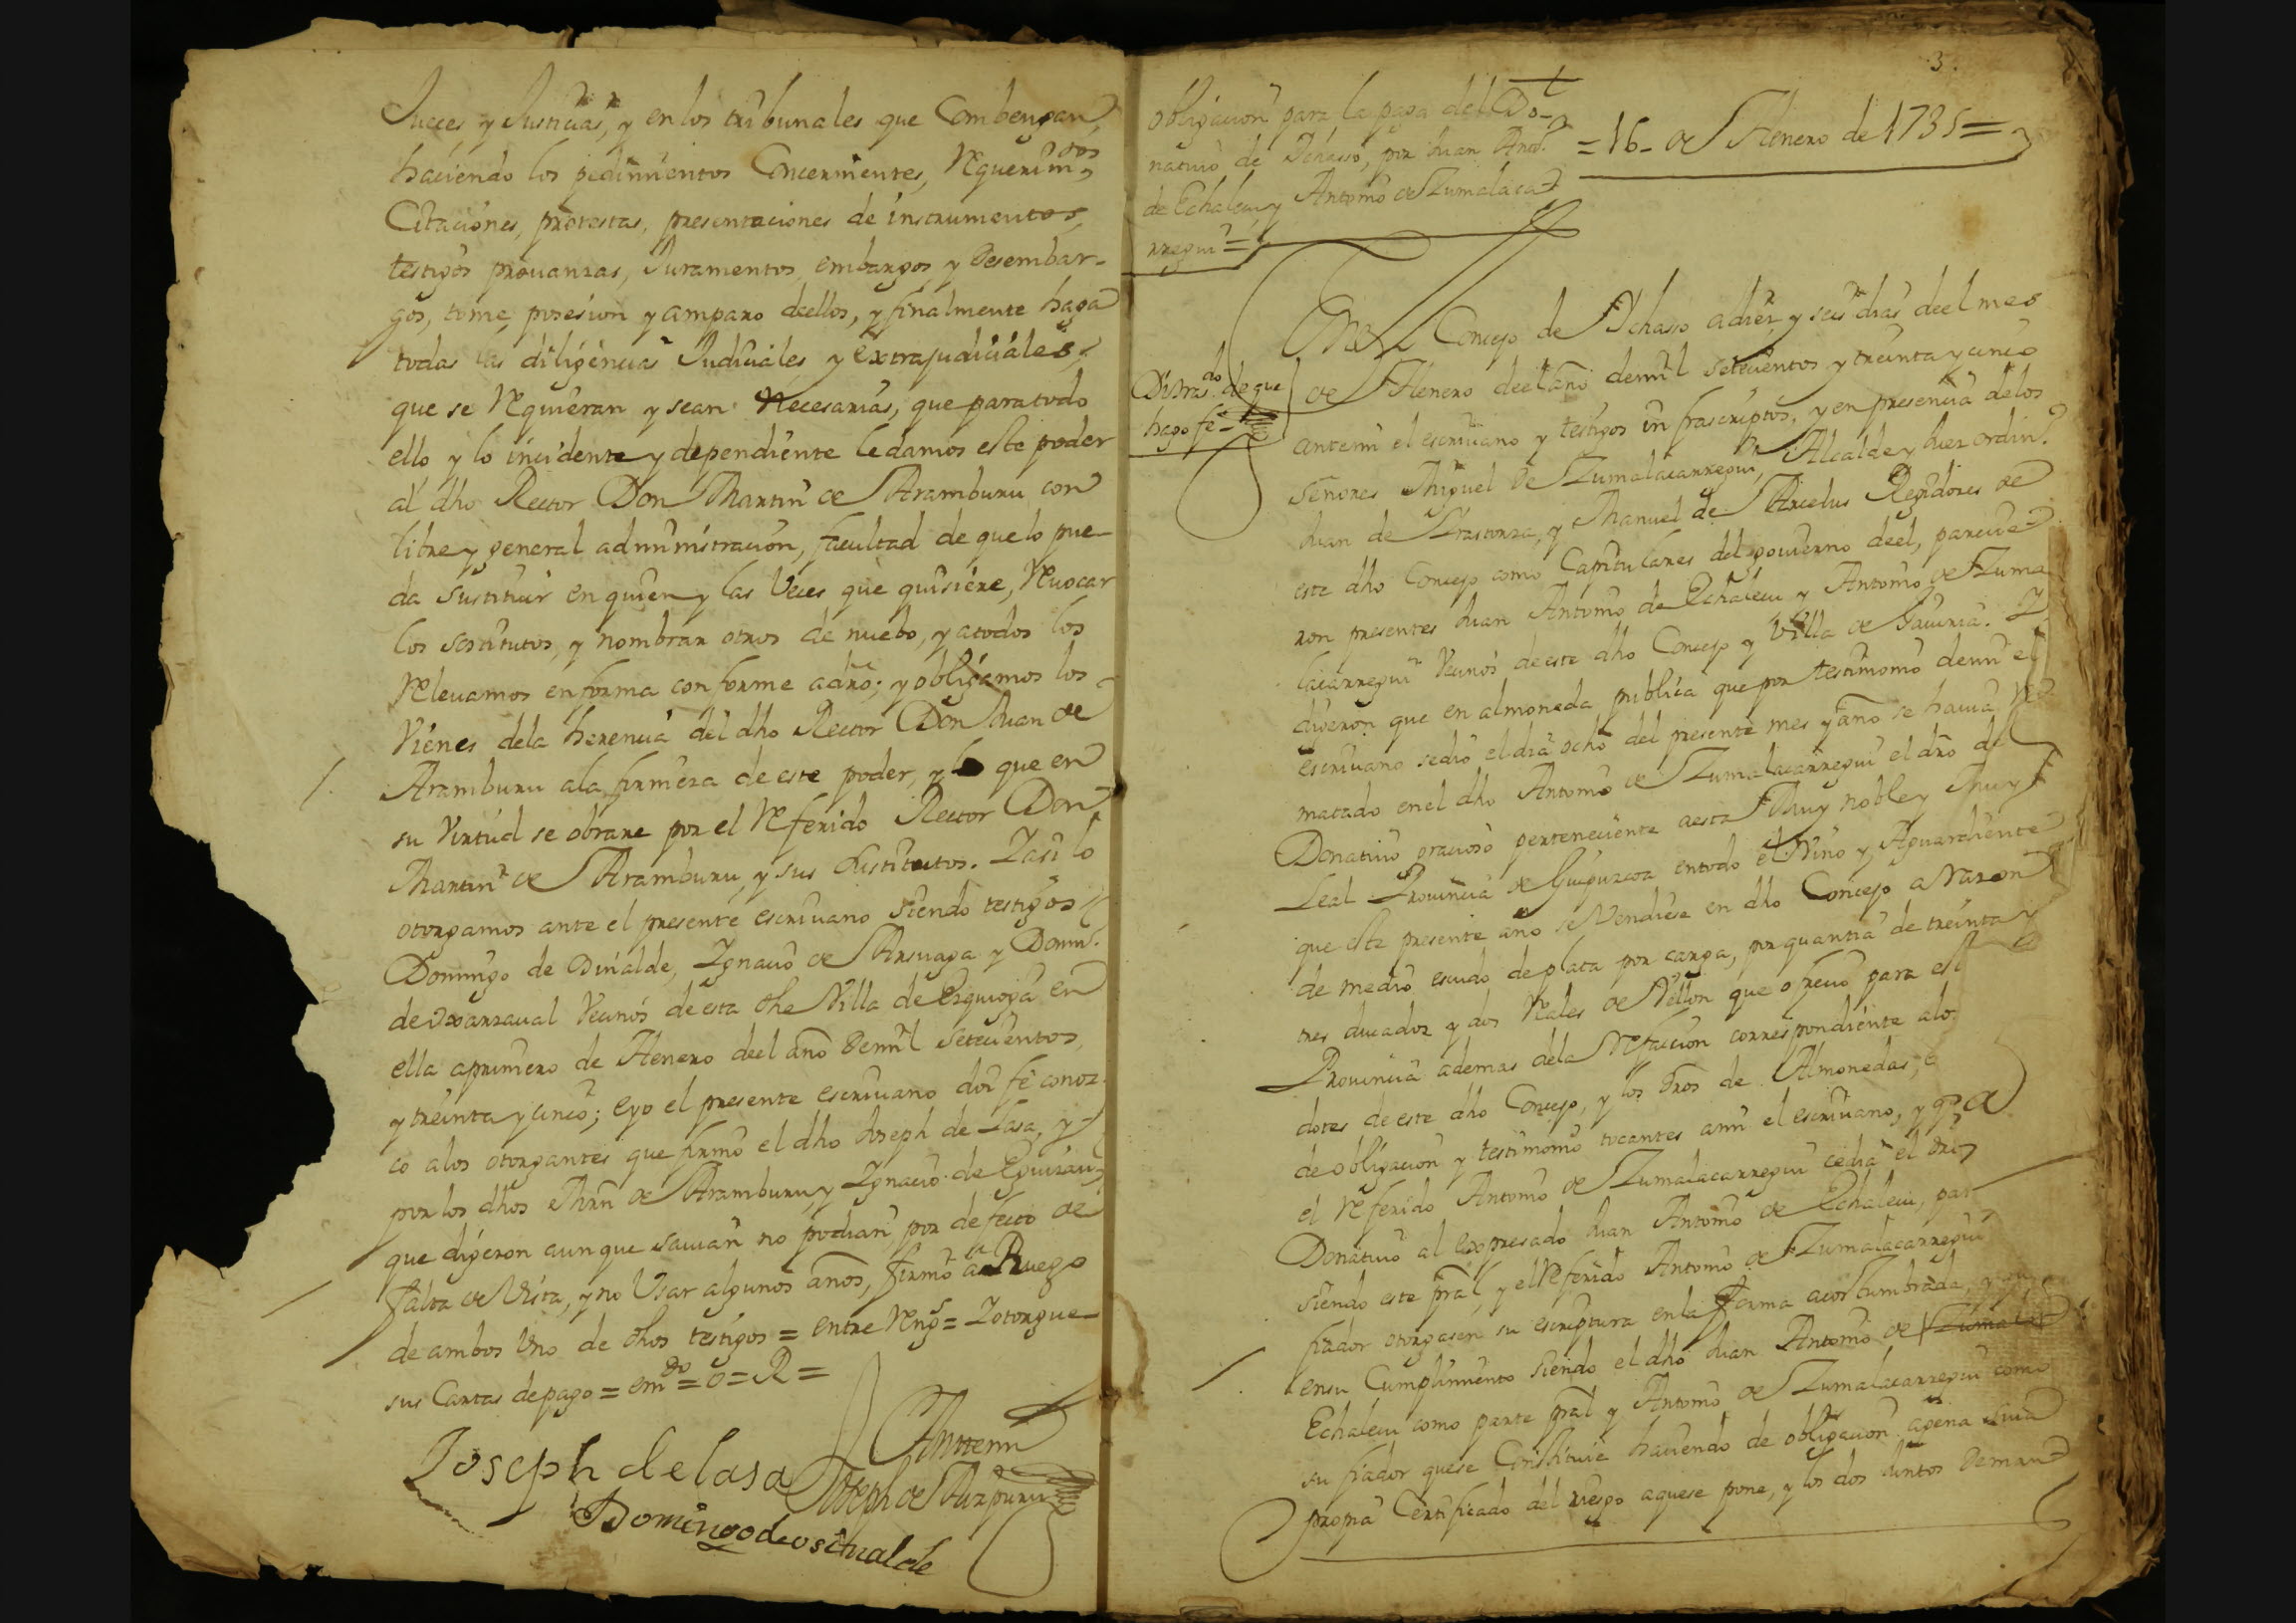 Jueces y Justicias, y en los tribunales que Combengan,
haciendo los pedimientos Concernientes, Requerim.tos
Citaciones, protestas, presentaciones de instrumentos,
testigos prouanzas, Juramentos embargos, y Desembar-
gos, tome, posesion y amparo deellos, y finalmente haga
todas las diligencias Judiciales y extrajudiciales,
que se Requieran y sean Necesarias, que para todo
ello y lo incidente y dependiente le damos este poder
al dho Rector Don Martin de Aramburu con
libre y general administracion, facultad de que lo pue-
da sustituir en quien y las Veces que quisiere, Reuocar
los sostitutos, y nombrar otros de nuebo, y atodos los
Releuamos en forma conforme adro; y obligamos los
Vienes dela herencia del dho Rector Don Juan de
Aramburu ala firmeza de este poder, y lo que en
su Virtud se obrare por el Referido Rector Don
Martin de Aramburu, y sus sustitutos. Y asi lo
otorgamos ante el presente escriuano siendo testigos
Domingo de Osinalde, Ygnacio de Arsuaga y Domin.o
de Vecinos de esta dha Villa de Ezquioga en
ella aprimero de Henero deel año Demil Setecientos
y treinta y cinco; eyo el presente escriuano doi fe conoz-
co alos otorgantes que firmo el dho Joseph de Lasa, y
por los dhos Mrn de Aramburu, y Ygnacio de Eguizau,
que digeron aunque sauian no podian por defecto de
falta de Vista, y no Usar algunos años, firmo a Ruego
de ambos Uno de dhos testigos = entre Reng.s = Y otorgue
sus Cartas de pago = em.do = o = R =
Joseph de lasa
Antemi
Joseph de Aizpuru
Domingo de osinalde
3.
Obligacion para la paga del Do-
natiuo de Ychasso, por Juan Ant.o
de Echalecu y Antonio de Zumalaca
rregui =
= 16 - de Henero de 1735 =
Di tras.do de que
hago fe -
En el Concejo de Ychasso adiez y seis dias deel mes
de Henero deel año demil setecientos y treinta y cinco
antemi el escriuano y testigos infrascriptos, y en presencia delos
Señores Miguel De Zumalacarregui, Alcalde y Juez ordin.o
Juan de Yrastorza, y Manuel de Arcelus Regidores de
este dho Concejo como Capitulares del gouierno deel, parecie
ron presentes Juan Antonio de Echalecu y Antonio de Zuma
lacarregui Vecinos de este dho Concejo y Villa de Gauiria. Y
digeron que en almoneda publica que por testimonio demi el
escriuano sedio el dia ocho del presente mes y año se hauia Re
matado enel dho Antonio de Zumalacarregui el dro de
Donatiuo gracioso perteneciente aesta Muy noble y Muy
Leal Prouincia de Guipuzcoa entodo el Vino y Aguardiente
que este presente año se Vendiese en dho Concejo a Razon
de medio escudo de plata por carga, por quantia de treinta y
tres ducados y dos Reales de Vellon que ofrecio para esta
Prouincia ademas dela Refaccion correspondiente alo
dores de este dho Concejo, y los dros de Almonedas, e
de obligacion y testimonio tocantes ami el escriuano, y q.e
el Referido Antonio de Zumalacarregui cedia el dho
Donatiuo al expresado Juan Antonio de Echalecu, par
siendo este pral, y el Referido Antonio de Zumalacarregui
fiador otorgasen su escriptura enla forma acostumbrada,
ensu Cumplimiento siendo el dho Juan Antonio de Zumala
Echalecu como parte pral y Antonio de Zumalacarregui como
su fiador quese Constituie haciendo de obligacion agena suia
propia Certificado del riesgo aquese pone, y los dos Juntos Deman